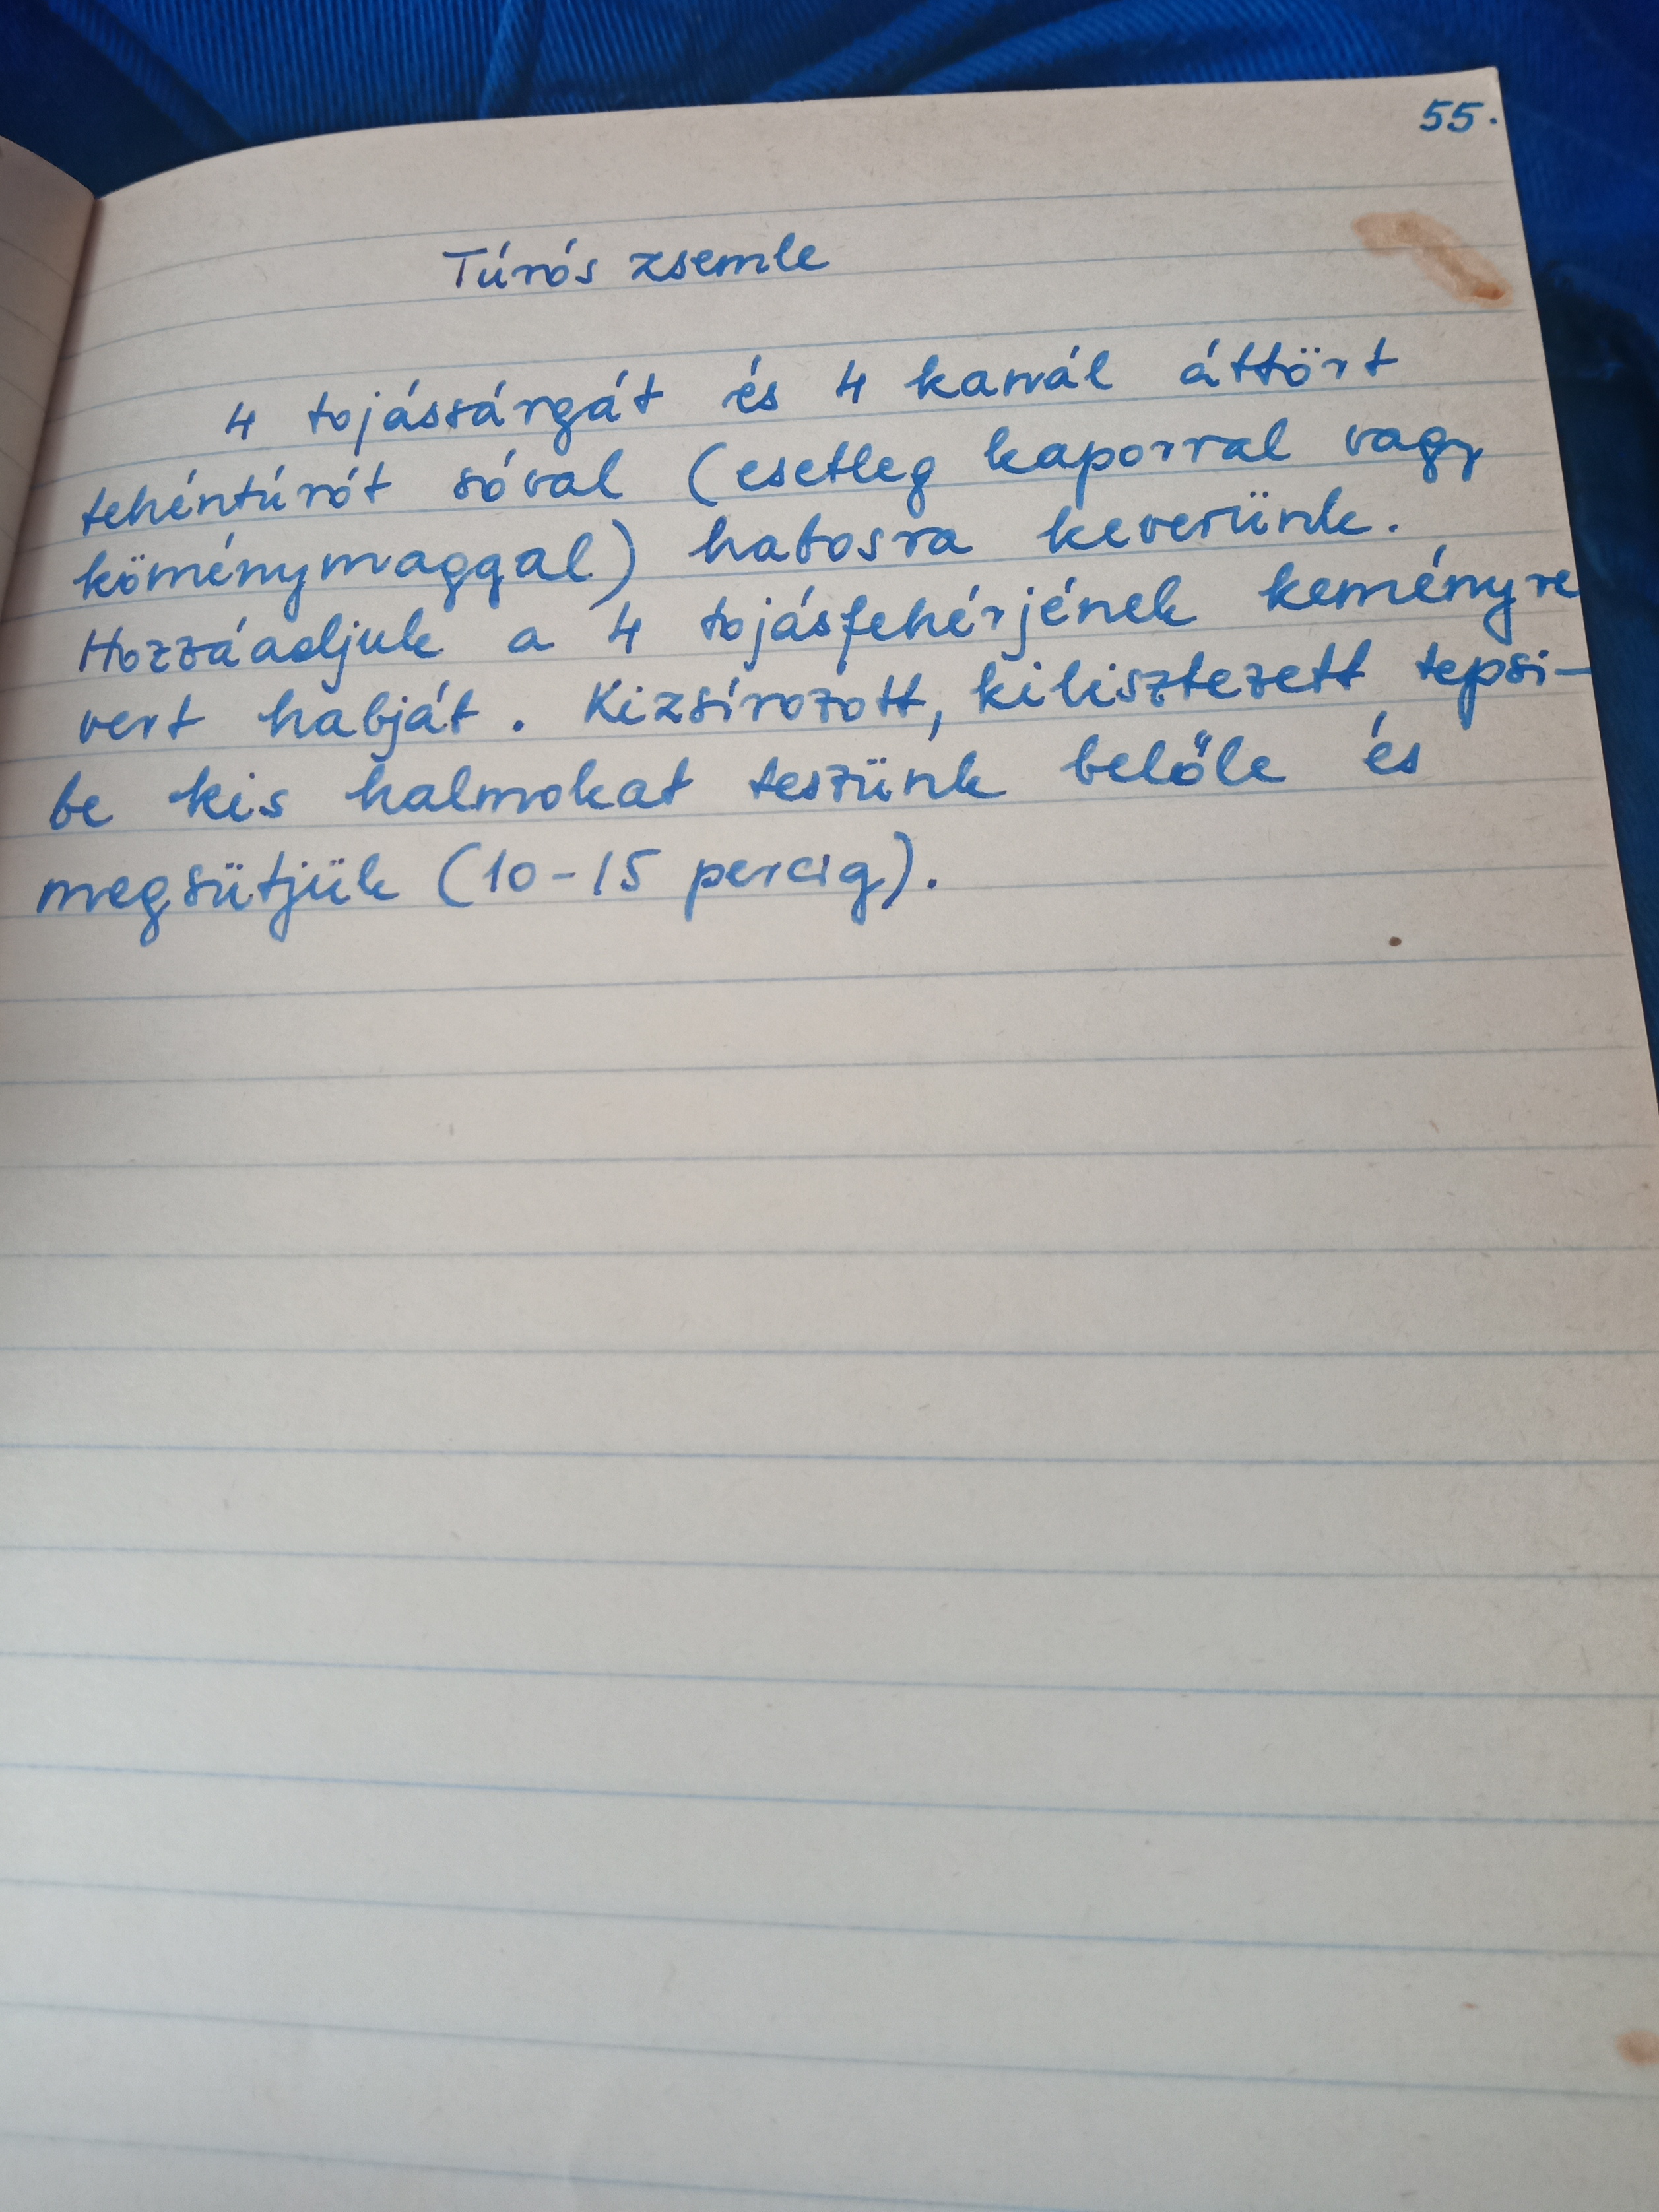 55.
Túrós zsemle
4 tojássárgát és 4 kanál áttört
tehéntúrót sóval (esetleg kaporral vagy
köménymaggal) habosra keverünk.
Hozzáadjuk a 4 tojásfehérjének keményre
vert habját. Kizsírozott, kilisztezett tepsi-
be kis halmokat teszünk belőle és
megsütjük (10-15 percig).